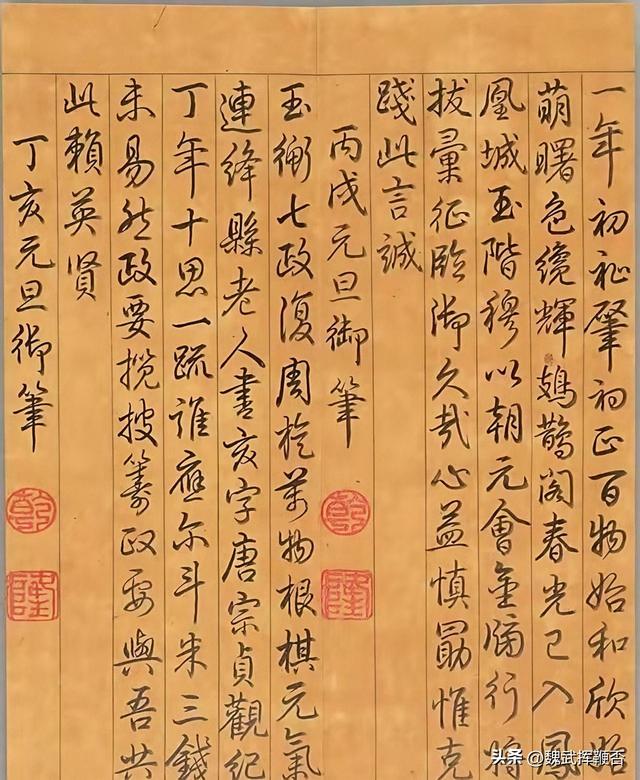 一年初祉肇初正百物始和欣昭
萌曙色纔輝鳷鵲閣春光已入鳳
凰城玉階穆以朝元會金牖行將
拔彙征臨御久哉心益慎勖惟克
踐此言誠
丙戌元旦御筆
乾
隆
玉衡七政復周旋萬物根棋元氣
連絳縣老人書亥字唐宗貞觀紀
丁年十思一疏誰應尔斗米三錢
未易然政要攬披籌政要與吾共
此賴英賢
丁亥元旦御筆
乾
隆
头条 @魏武挥鞭否